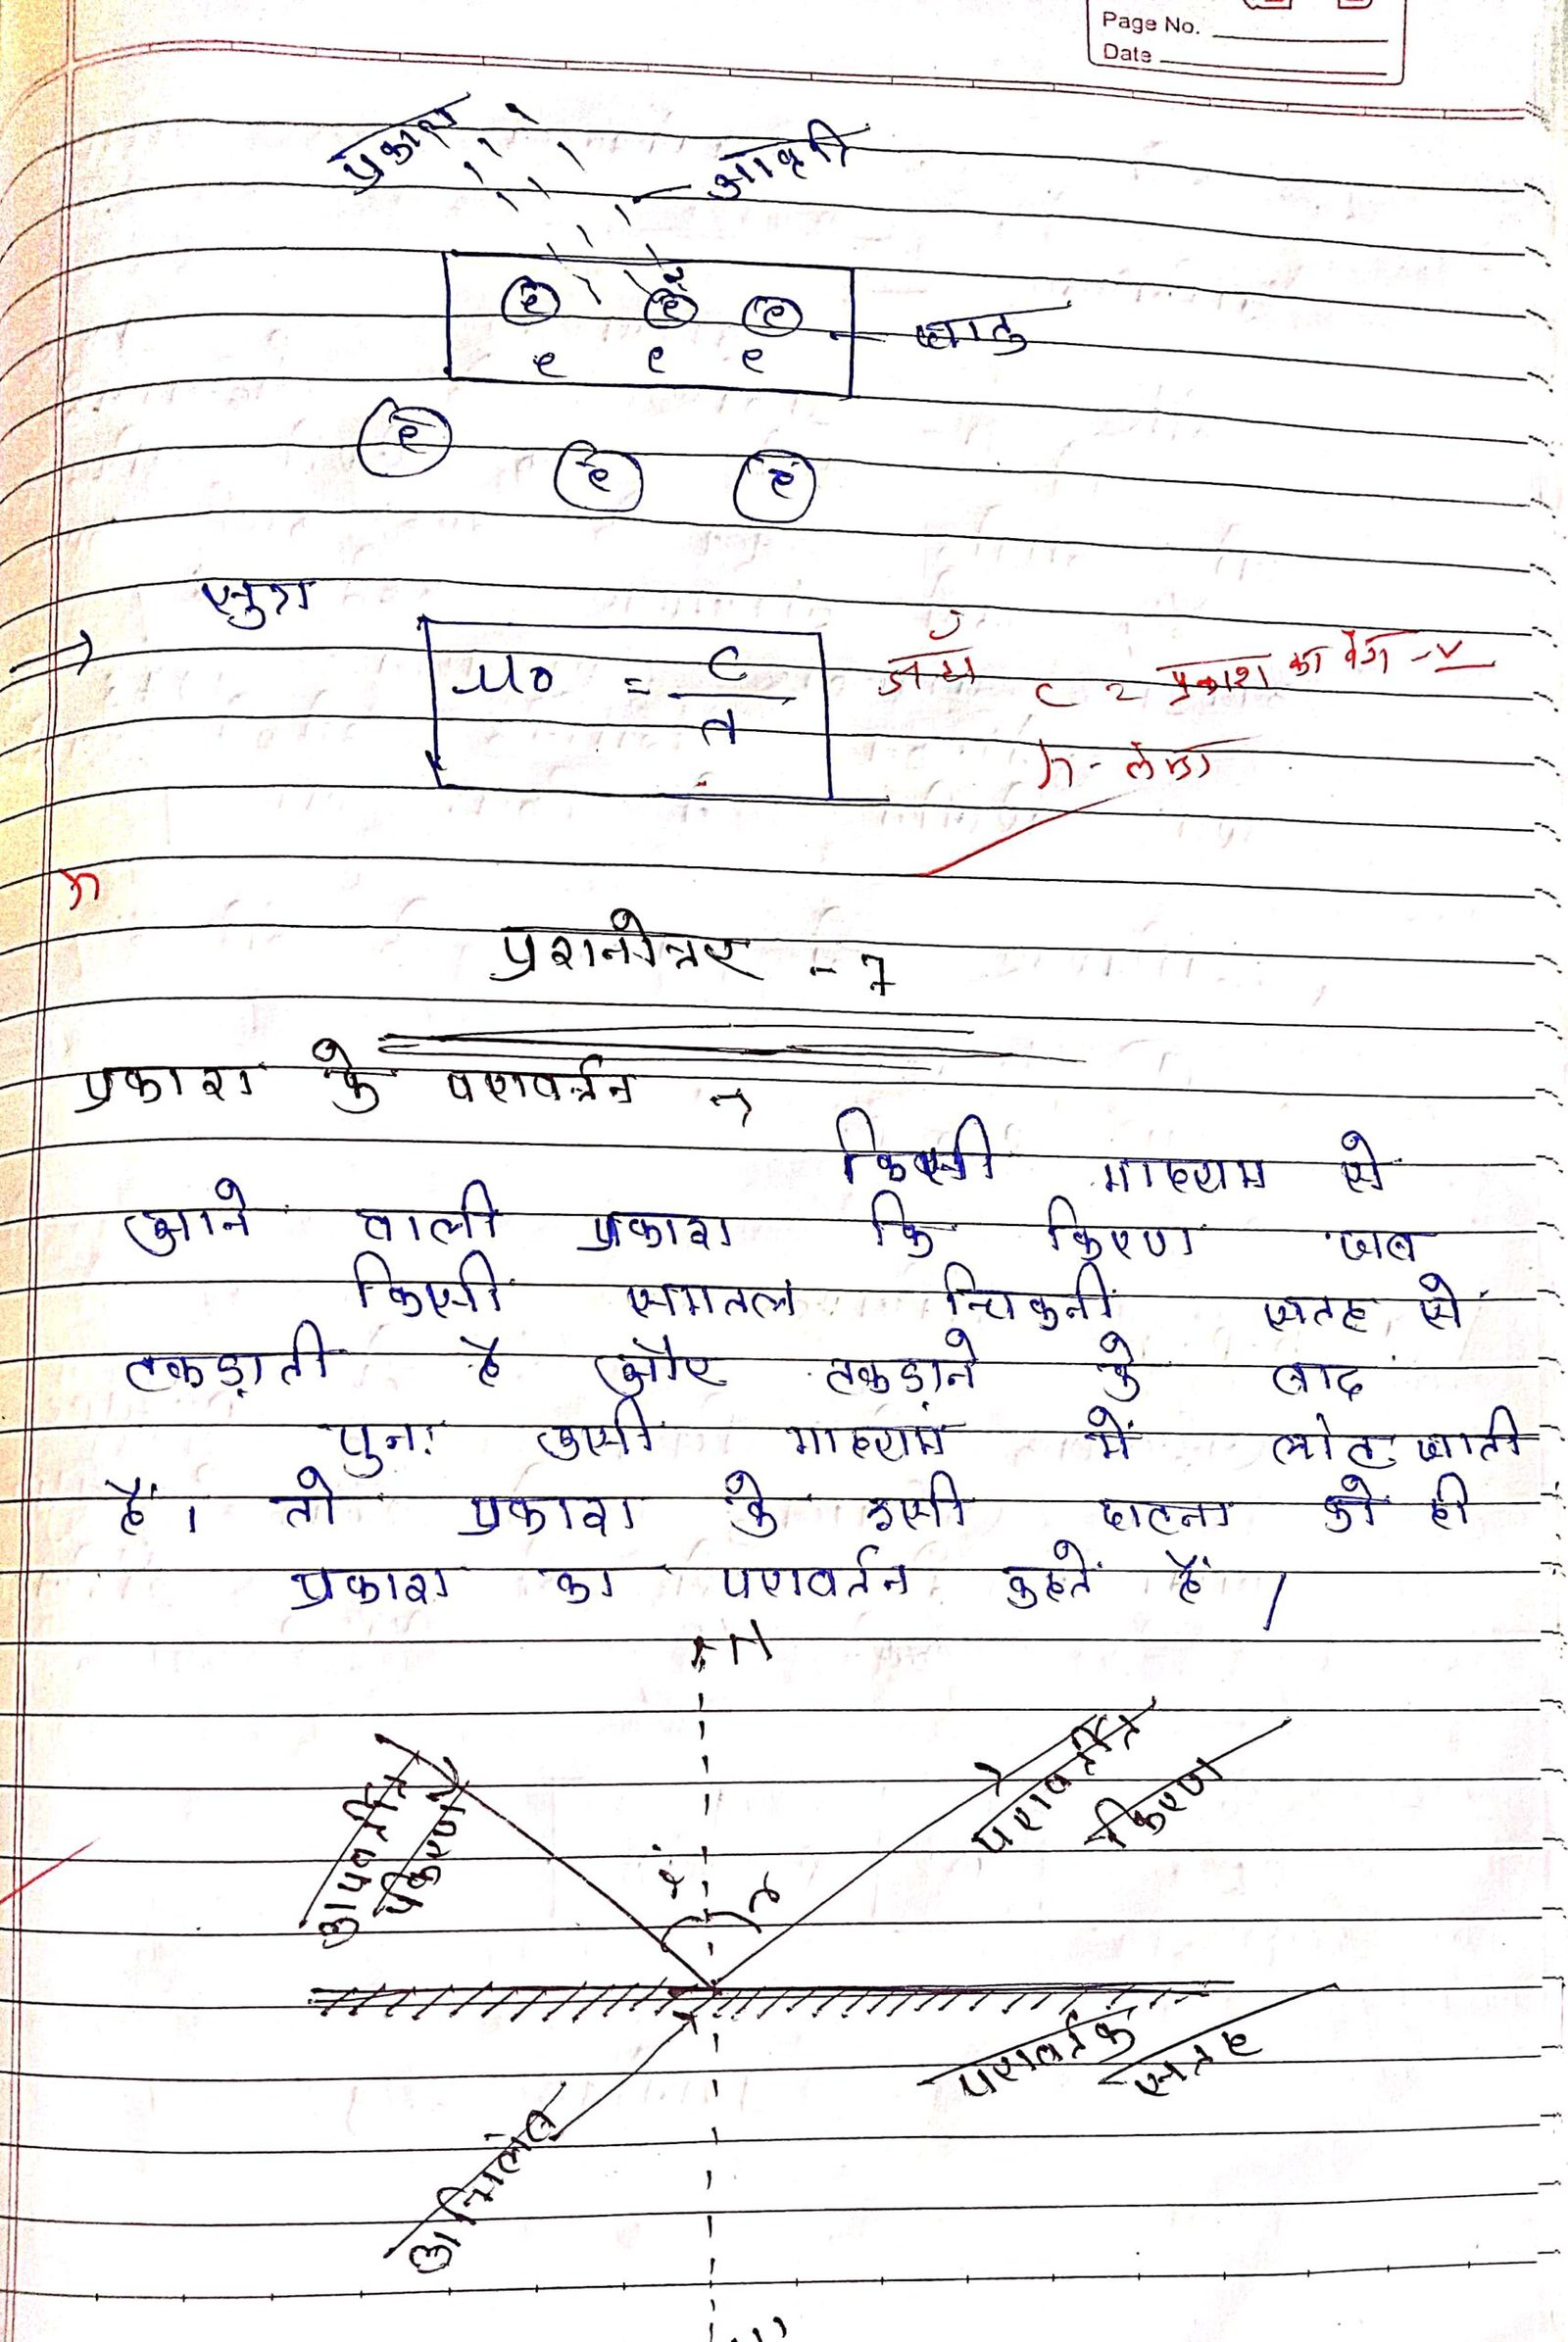 Page No.
Date
प्रकाश
आवृत्ती
e e e
धातु
e e e
e e e
सुत्र
μ0 = C / λ
जहाँ
C = प्रकाश का वेग - v
प्रशनोत्तर - 7
प्रकाश के परावर्त्तन →
किसी माध्यम से
आने वाली प्रकाश कि किरण जब
किसी समतल चिकनी सतह से
टकड़ाती है और टकड़ाने के बाद
पुनः उसी माध्यम में लोट जाती
हैं। तो प्रकाश के इसी घटना को ही
प्रकाश का परावर्तन कहते हैं।
N
आपतीत किरण
परावर्तीत किरण
i r
परावर्तक सतह
अभिलंब